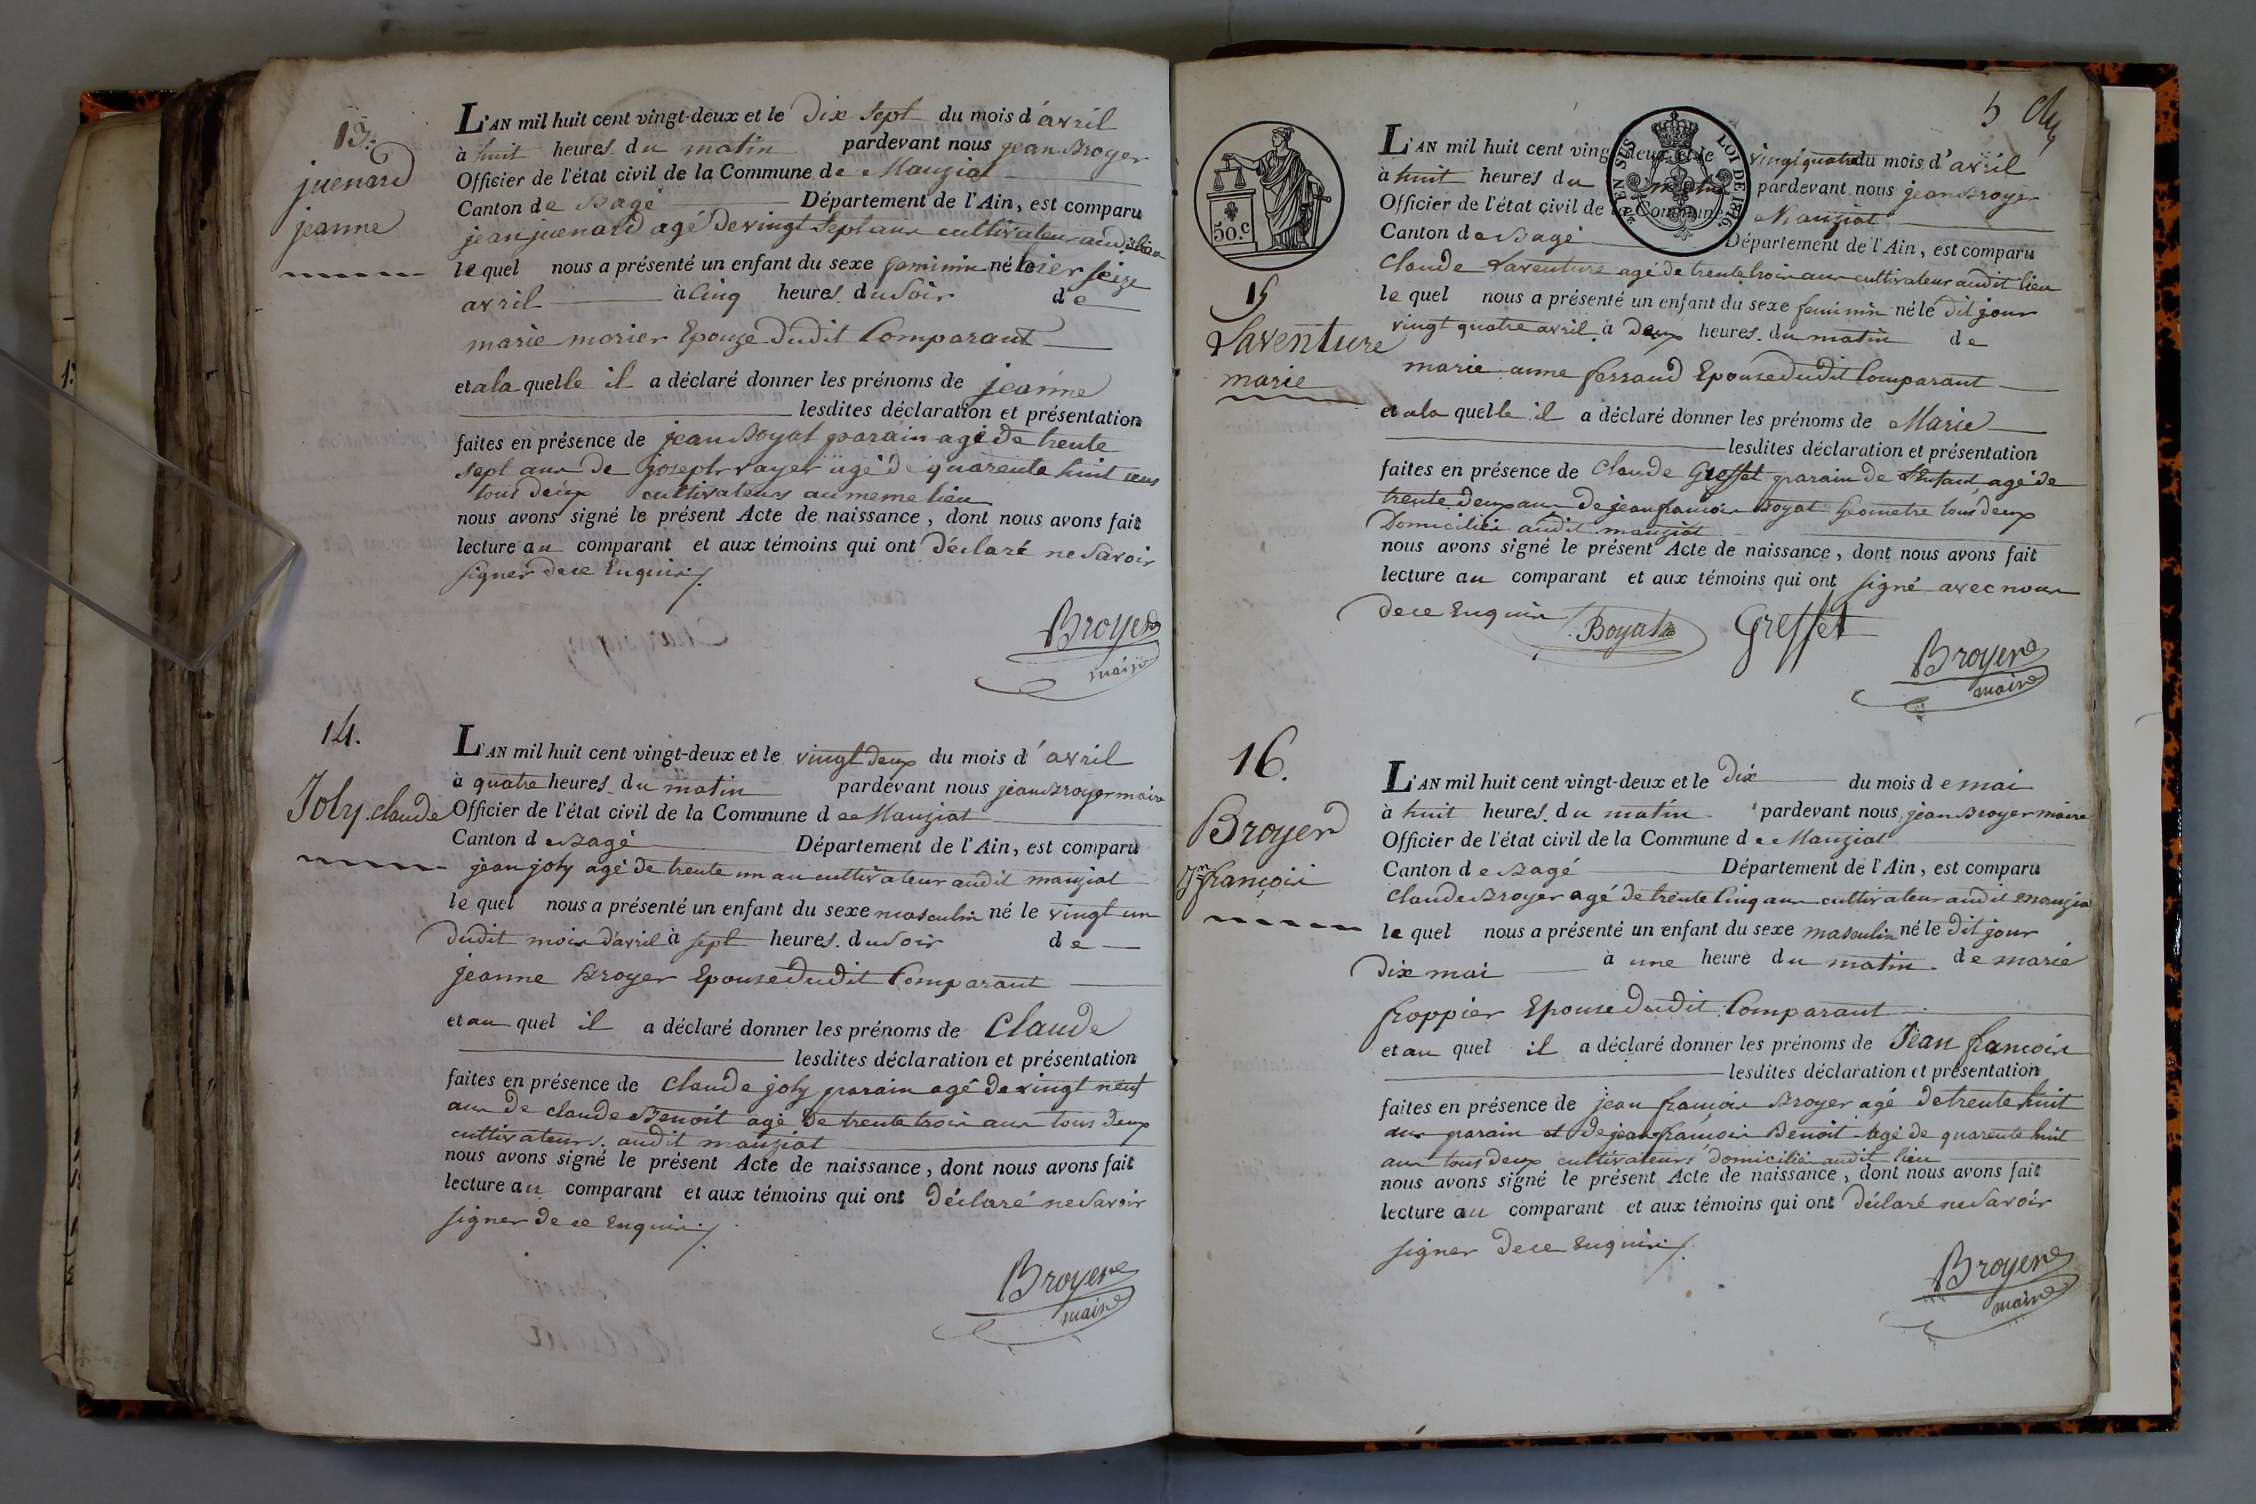 13.
juenard
jeanne
L'AN mil huit cent vingt-deux et le dix sept du mois d'avril
à huit heures du matin pardevant nous jean Broyer
Officier de l'état civil de la Commune de Manziat
Canton de Bagé Département de l'Ain, est comparu
jean juenard agé de vingt sept ans cultivateur audit lieu
le quel nous a présenté un enfant du sexe feminin né le hier seize
avril à cinq heures du soir de
marie morier Epouze dudit Comparant
et a la quelle il a déclaré donner les prénoms de jeanne
lesdites déclaration et présentation
faites en présence de jean Boyat parain agé de trente
sept ans de joseph rayer agé de quarente huit ans
tous deux cultivateurs au meme lieu
nous avons signé le présent Acte de naissance, dont nous avons fait
lecture au comparant et aux témoins qui ont déclaré ne Savoir
signer de ce Enquis
Broyer
maire
14.
Joly claude
L'AN mil huit cent vingt-deux et le vingt deux du mois d'avril
à quatre heures du matin pardevant nous jean Broyer maire
Officier de l'état civil de la Commune de Manziat
Canton de Bagé Département de l'Ain, est comparu
jean joly agé de trente un an cultivateur audit manziat
le quel nous a présenté un enfant du sexe masculin né le vingt un
dudit mois d'avril à sept heures du soir de
jeanne Broyer Epouse dudit Comparant
et au quel il a déclaré donner les prénoms de Claude
lesdites déclaration et présentation
faites en présence de Claude joly parain agé de vingt neuf
ans de claude Benoit agé de trente trois ans tous deux
cultivateurs audit manziat
nous avons signé le présent Acte de naissance, dont nous avons fait
lecture au comparant et aux témoins qui ont déclaré ne Savoir
signer de ce Enquis
Broyer
maire
5
50.c
TEN SUS LOI DE 1816.
15
Laventure
marie
L'AN mil huit cent vingt-deux et le vingt quatre du mois d'avril
à huit heures du matin pardevant nous jean Broyer
Officier de l'état civil de la Commune Manziat
Canton de Bagé Département de l'Ain, est comparu
Claude Laventure agé de trente trois ans cultivateur audit lieu
le quel nous a présenté un enfant du sexe feminin né le dit jour
vingt quatre avril à deux heures du matin de
marie anne ferraud Epouse dudit Comparant
et a la quelle il a déclaré donner les prénoms de Marie
lesdites déclaration et présentation
faites en présence de Claude Greffet parain de L'enfant, agé de
trente deux ans de jean francois Boyat Geometre tous deux
Domiciliés audit manziat
nous avons signé le présent Acte de naissance, dont nous avons fait
lecture au comparant et aux témoins qui ont signé avec nous
de ce Enquis
Boyat Greffet
Broyer
maire
16.
Broyer
Jn françois
L'AN mil huit cent vingt-deux et le Dix du mois de mai
à huit heures du matin pardevant nous jean Broyer maire
Officier de l'état civil de la Commune de Manziat
Canton de Bagé Département de l'Ain, est comparu
Claude Broyer agé de trente Cinq ans cultivateur audit Manzia
le quel nous a présenté un enfant du sexe masculin né le dit jour
Dix mai à une heure du matin de marie
froppier Epouse dudit Comparant
et au quel il a déclaré donner les prénoms de Jean francois
lesdites déclaration et présentation
faites en présence de jean françois Broyer agé de trente huit
ans parain et de jean françois Benoit agé de quarente huit
ans tous deux cultivateurs domiciliés audit lieu
nous avons signé le présent Acte de naissance, dont nous avons fait
lecture au comparant et aux témoins qui ont déclaré ne Savoir
signer de ce Enquis
Broyer
maire